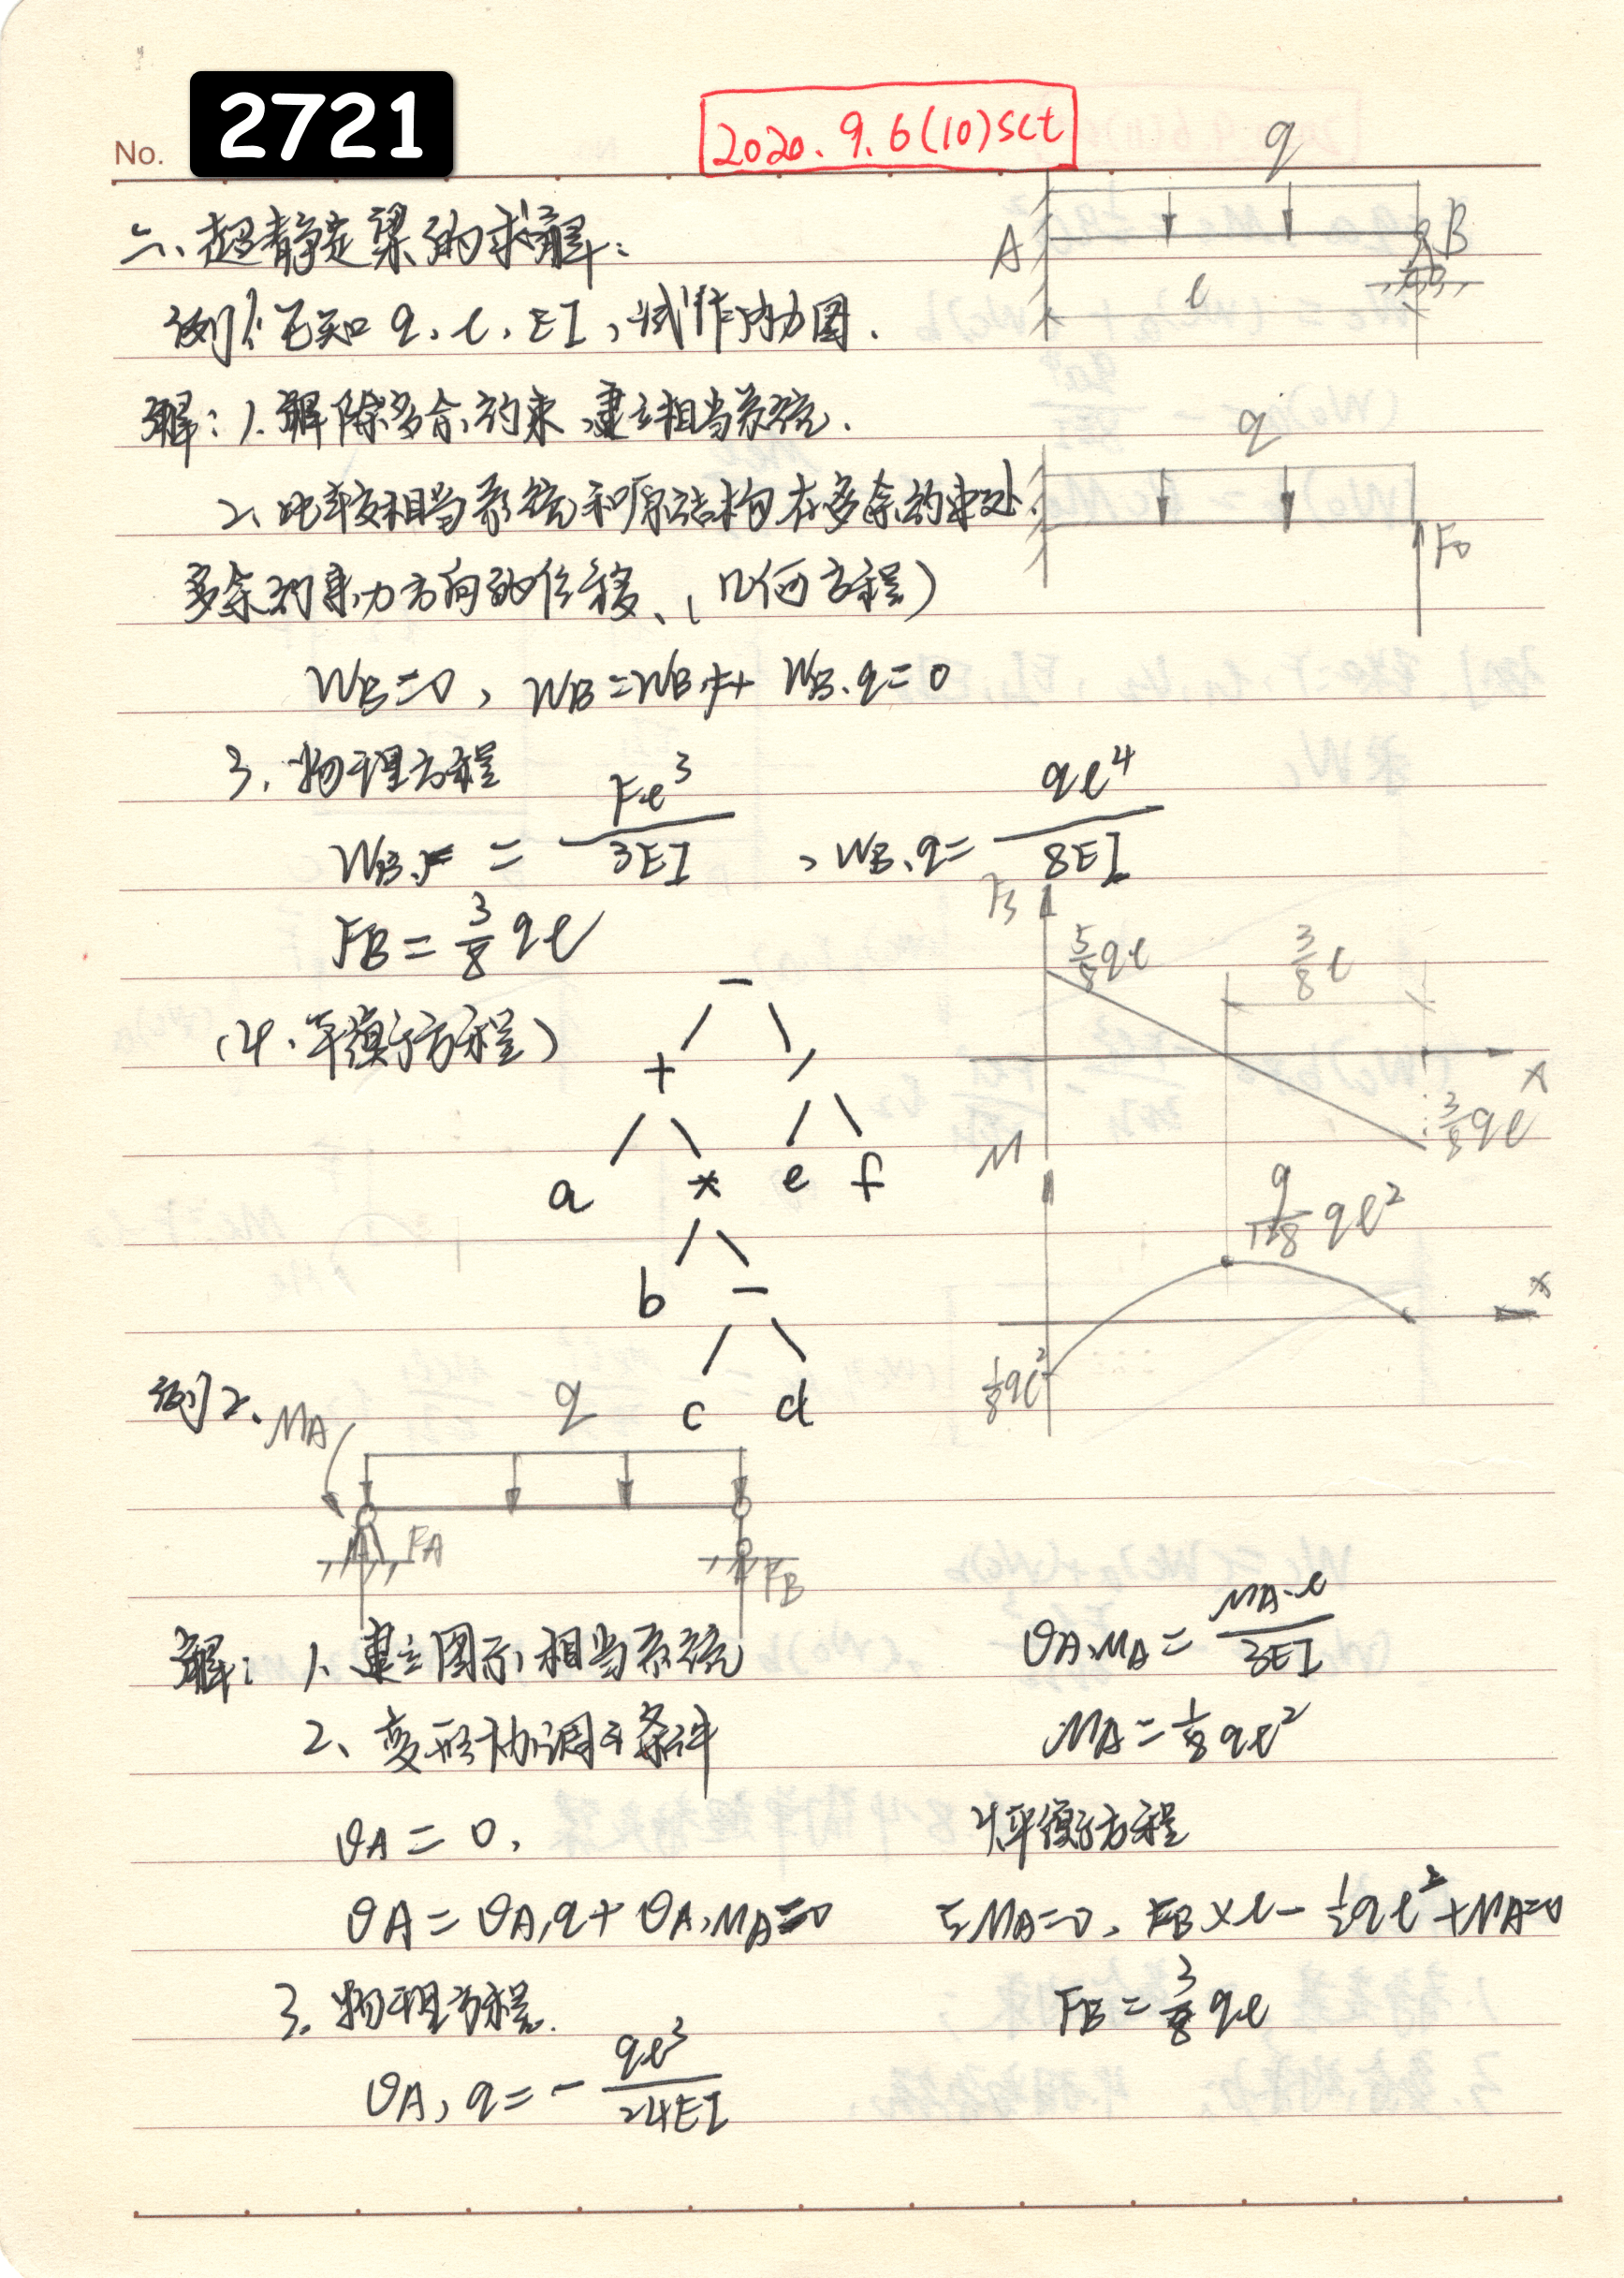 2721
No.
2020.9.6(10)sct
六、超静定梁的求解:
例1、已知 q、l、EI,试作内力图.
解:1.解除多余约束,建立相当系统.
2、比较相当系统和原结构在多余约束处,
多余约束力方向的位移、(几何方程)
WB=0, WB=WB,F+ WB,q=0
3、物理方程
WB,F = Fl³/3EI ,WB,q= ql⁴/8EI
FB = 3/8 ql
(4、平衡方程)
q
A
B
l
q
FB
Fs
5/8 ql
3/8 l
x
3/8 ql
M
9/128 ql²
x
1/8 ql²
-
+ /
a * e f
b -
c d
例2、
MA
q
FA
FB
解: 1、建立图示相当系统
2、变形协调条件
θA = 0,
θA = θA,q+ θA,MA=0
3. 物理方程.
θA,q=- ql³/24EI
θA,MA= MA·l/3EI
MA=1/8 ql²
4.平衡方程
ΣMA=0, FB×l- 1/2ql²+MA=0
FB = 3/8 ql